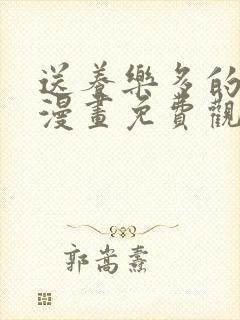 送養樂多的
漫畫免費觀
郭嵩燾